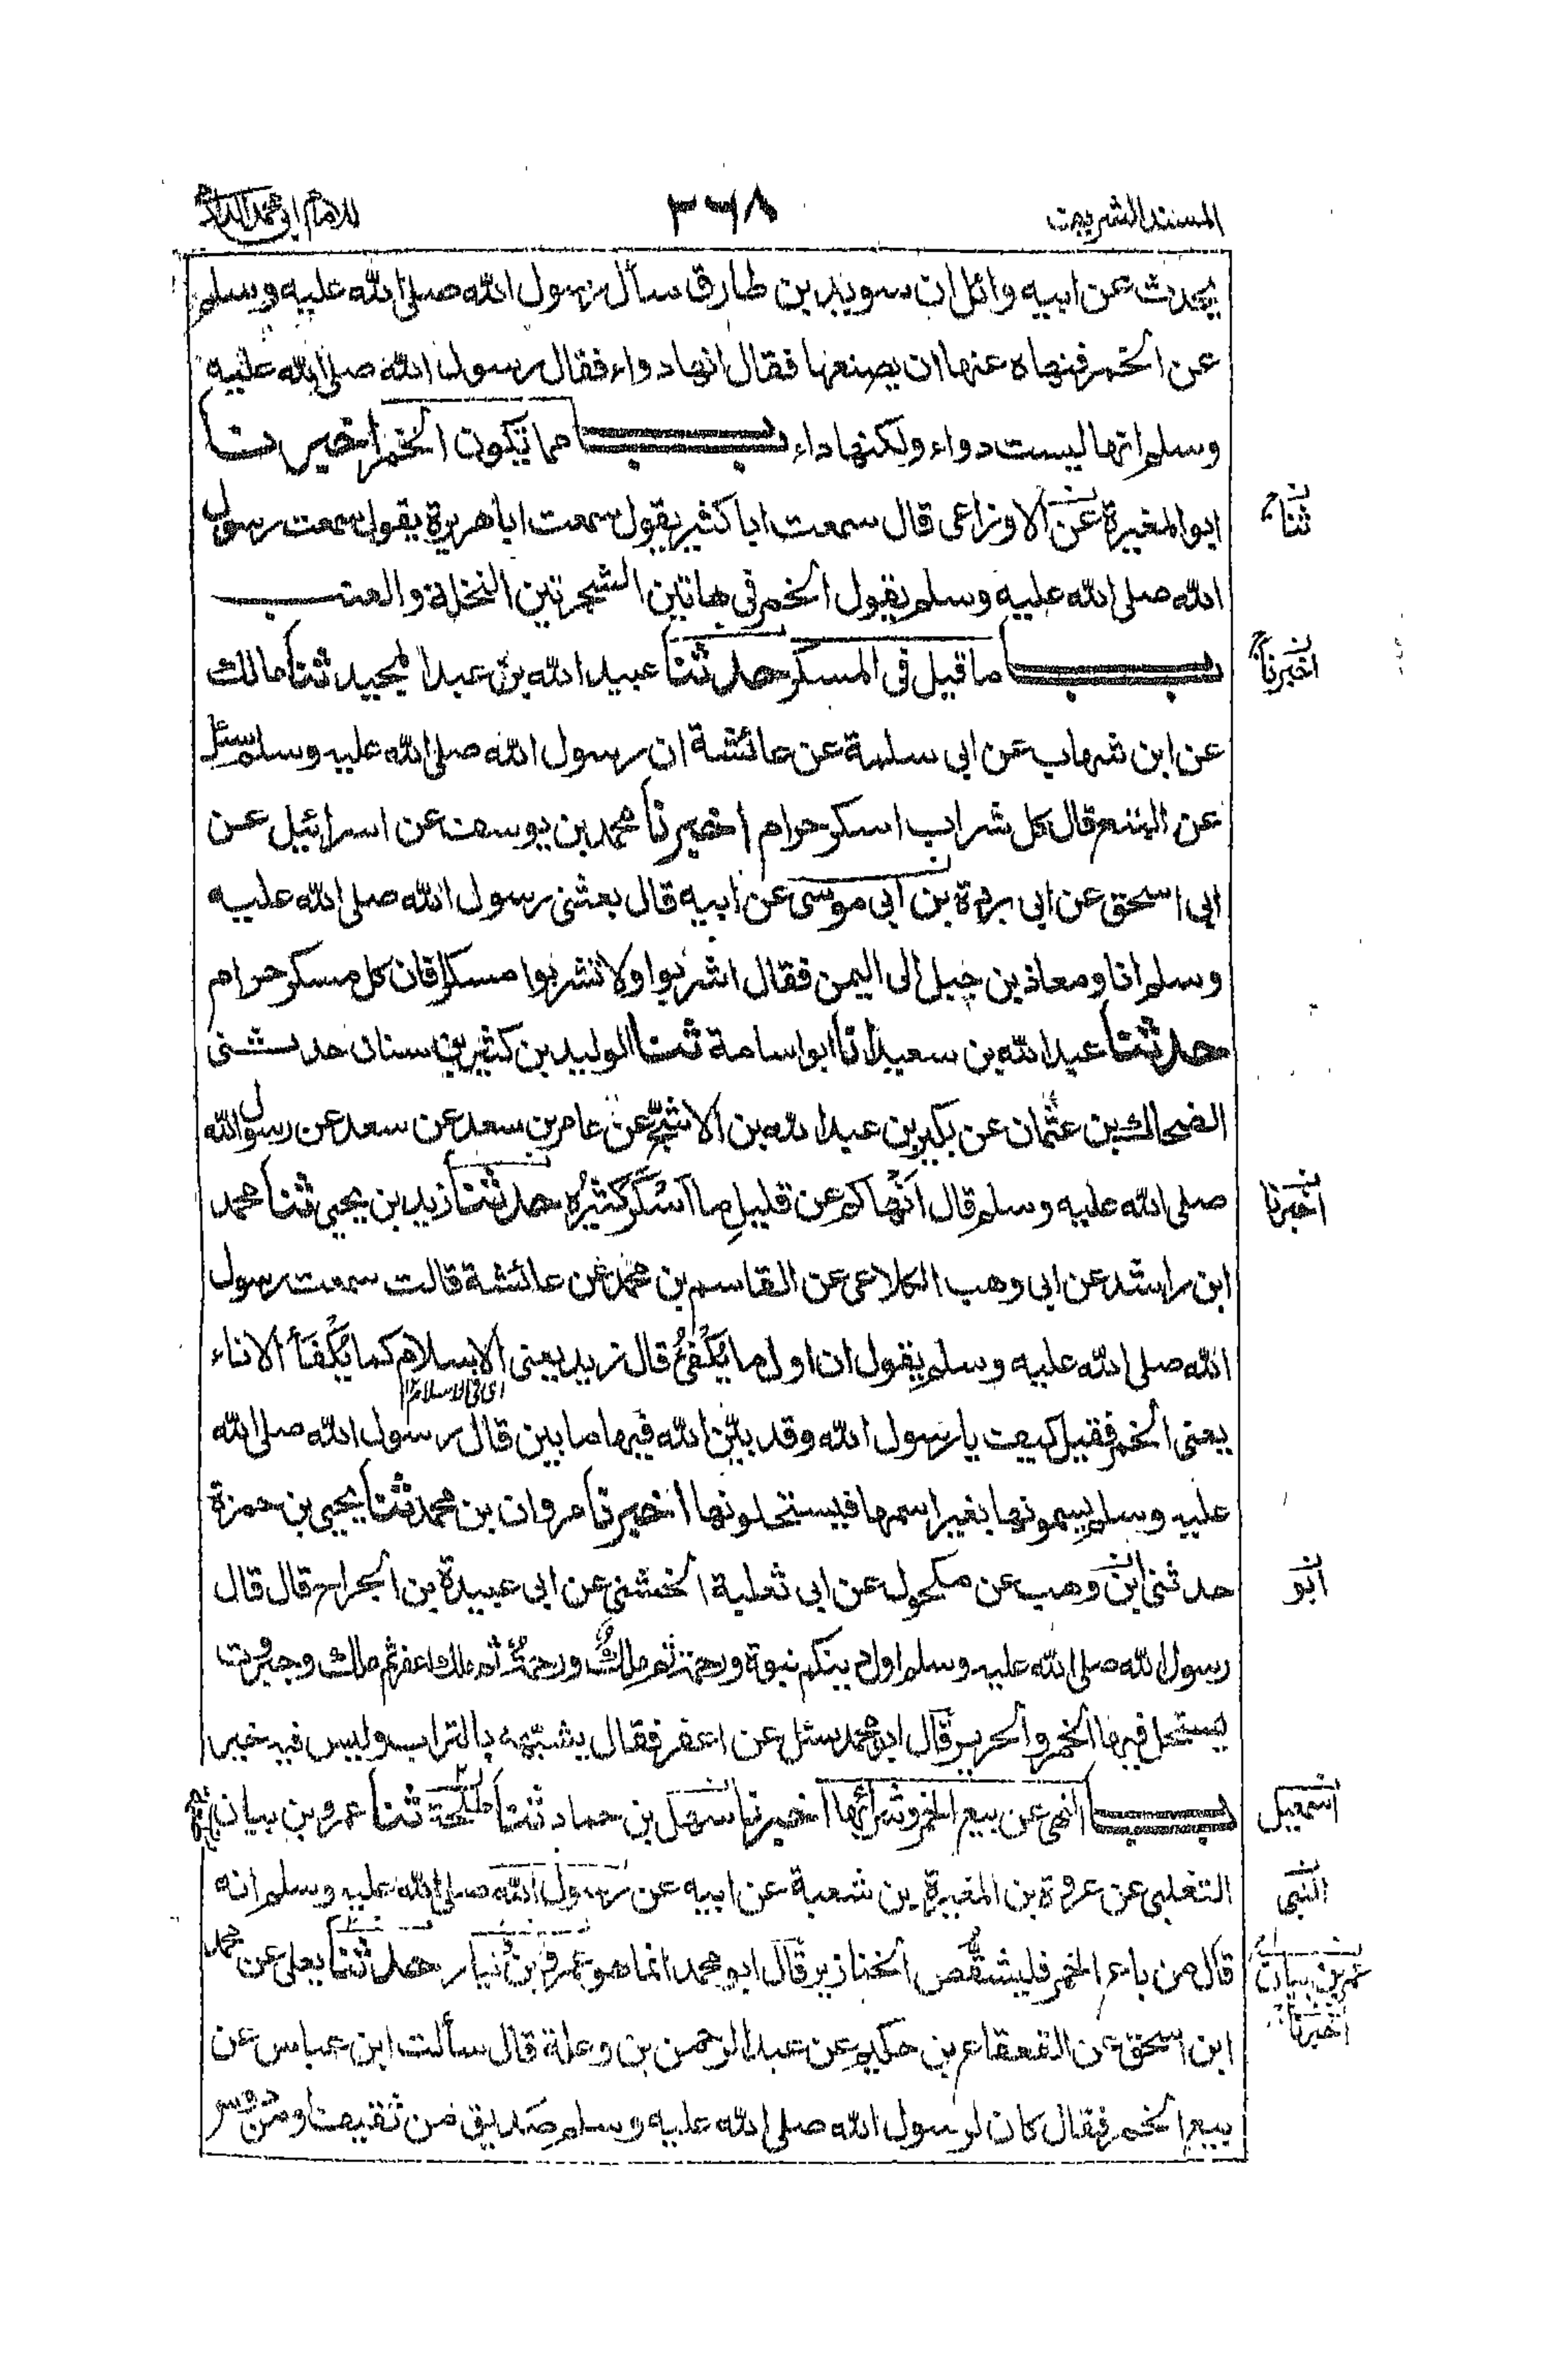 المسند الشريف
٢٦٨
للامام ابى محمد الدارمى
يحدث عن ابيه وائل ان سويد بن طارق سأل رسول الله صلى الله عليه وسلم
عن الخمر فنهاه عنها ان يصنعها فقال انها دواء فقال رسول الله صلى الله عليه
وسلم انها ليست دواء ولكنها داء باب مما تكون الخمر اخبرنا
ثنا
ابو المغيرة عن الاوزاعى قال سمعت ابا كثير يقول سمعت ابا هريرة يقول سمعت رسول
الله صلى الله عليه وسلم يقول الخمر فى هاتين الشجرتين النخلة والعنب
اخبرنا
باب ما قيل فى المسكر حدثنا عبيد الله بن عبد المجيد ثنا مالك
عن ابن شهاب عن ابى سلمة عن عائشة ان رسول الله صلى الله عليه وسلم سئل
عن البتع قال كل شراب اسكر حرام اخبرنا محمد بن يوسف عن اسرائيل عن
ابى اسحق عن ابى بردة بن ابى موسى عن ابيه قال بعثنى رسول الله صلى الله عليه
وسلم انا ومعاذ بن جبل الى اليمن فقال اشربوا ولا تشربوا مسكرا فان كل مسكر حرام
حدثنا عبد الله بن سعيد انا ابو اسامة ثنا الوليد بن كثير بن سنان حدثنى
الضحاك بن عثمان عن بكير بن عبد الله بن الاشج عن عامر بن سعد عن سعد عن رسول الله
اخبرنا
صلى الله عليه وسلم قال أَنْهاكم عن قليلِ ما اَسْكَرَ كثيرُه حدثنا زيد بن يحيى ثنا محمد
ابن راشد عن ابى وهب الكلاعى عن القاسم بن محمد عن عائشة قالت سمعت رسول
الله صلى الله عليه وسلم يقول ان اول ما يُكْفَئُ قال زيد يعنى الاسلام كما يُكْفَأ الاناء
اى فى الاسلام ١٢
يعنى الخمر فقيل كيف يا رسول الله وقد بيّن الله فيها ما بين قال رسول الله صلى الله
عليه وسلم يسمونها بغير اسمها فيستحلونها اخبرنا مروان بن محمد ثنا يحيى بن حمزة
ابو
حدثنى ابن وهب عن مكحول عن ابى ثعلبة الخشنى عن ابى عبيدة بن الجراح قال قال
رسول الله صلى الله عليه وسلم اول دينكم نبوة ورحمة ثم ملكٌ ورحمةٌ ثم ملك اعفر ثم ملك وجبروت
يستحل فيها الخمر والحرير قال ابو محمد سئل عن اعفر فقال يشبّهه بالتراب وليس فيه خير
اسمعيل
باب النهى عن بيع الخمر وشرائها اخبرنا سهل بن حماد ثنا طلحة ثنا عمرو بن بيان
النبى
التغلبى عن عروة بن المغيرة بن شعبة عن ابيه عن رسول الله صلى الله عليه وسلم انه
عمر بن بيان
قال من باع الخمر فليشقّص الخنازير قال ابو محمد انما هو عمرو بن دينار حدثنا يعلى عن محمد
اخبرنا
ابن اسحق عن القعقاع بن حكيم عن عبد الرحمن بن وعلة قال سألت ابن عباس عن
بيع الخمر فقال كان لرسول الله صلى الله عليه وسلم صديق من ثقيف او من دوس